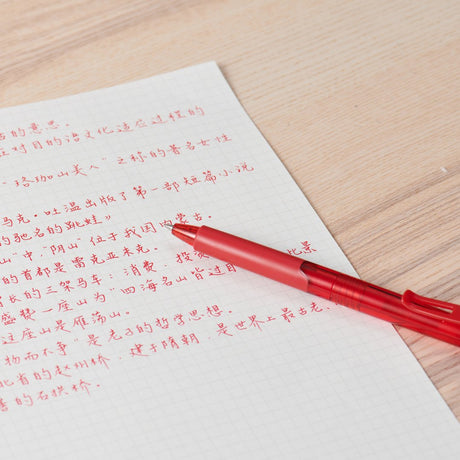 的意思。
应对目的语文化适应过程的
“珞珈山美人”之称的著名女性
马克·吐温出版了第一部短篇小说
的驰名的跳蛙》
山”中“阴山”位于我国内蒙古。
的首都是雷克亚未克。
长的三驾马车：消费 投 比景
盛赞一座山为“四海名山皆过目
这座山是雁荡山。
物而不争”是老子的哲学思想。
北省的赵州桥，建于隋朝，是世界上最古老
善的石拱桥。